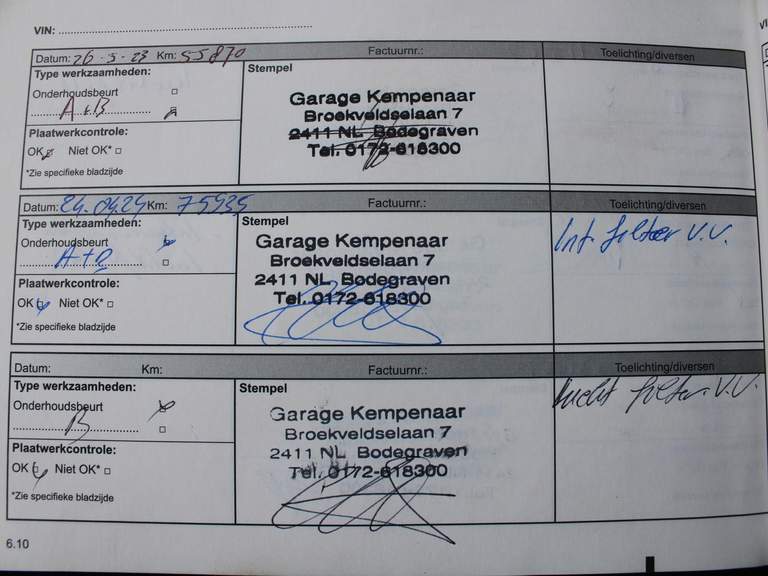 VIN:
Datum: 26-5-23 Km: 55870 Factuurnr.: Toelichting/diversen
Type werkzaamheden:
Stempel
Onderhoudsbeurt
A+B
Plaatwerkcontrole:
OK Niet OK*
*Zie specifieke bladzijde
Garage Kempenaar
Broekveldselaan 7
2411 NL Bodegraven
Tel. 0172-618300
Datum: 24.04.24 Km: 75935 Factuurnr.: Toelichting/diversen
Type werkzaamheden:
Stempel
Onderhoudsbeurt
Plaatwerkcontrole:
OK Niet OK*
*Zie specifieke bladzijde
Garage Kempenaar
Broekveldselaan 7
2411 NL Bodegraven
Tel. 0172-618300
Int. filter V.V.
Datum: Km: Factuurnr.: Toelichting/diversen
Type werkzaamheden:
Stempel
Onderhoudsbeurt
B
Plaatwerkcontrole:
OK Niet OK*
*Zie specifieke bladzijde
Garage Kempenaar
Broekveldselaan 7
2411 NL Bodegraven
Tel. 0172-618300
lucht filter. V.V.
6.10